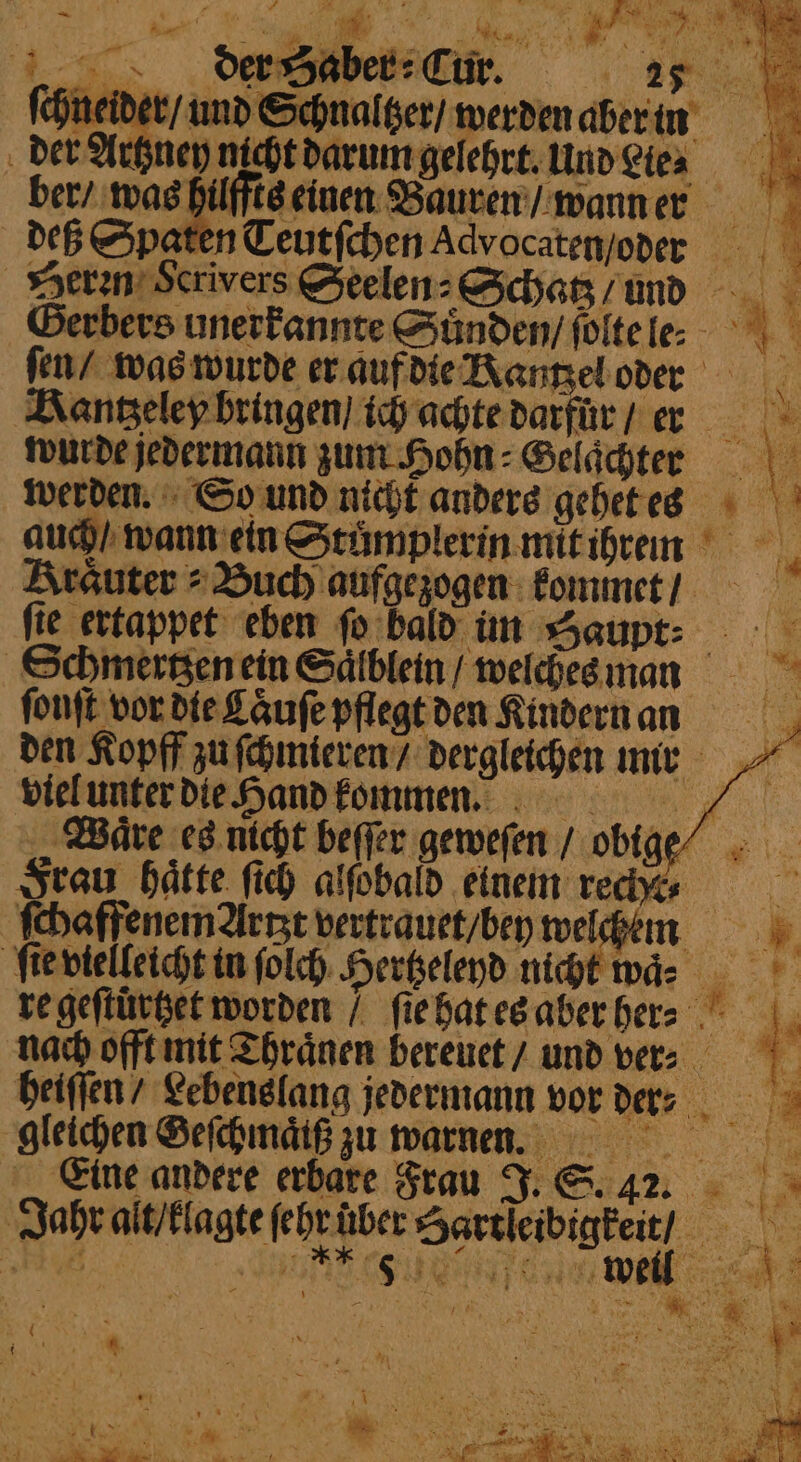 der Haber⸗Cur. 25
ſchneider/ und Schnaltzer/ werden aber in
der Artzney nicht darum gelehrt. Und Lie⸗
ber/ was hilffts einen Bauren / wann er
deß Spaten Teutſchen Advocaten/oder
Herꝛn Scrivers Seelen⸗Schatz / und
Gerbers unerkannte Suͤnden/ ſolte le⸗
ſen/ was wurde er auf die Kantzel oder
Kantzeley bringen/ ich achte darfuͤr / er
wurde jedermann zum Hohn⸗Gelaͤchter
werden. So und nicht anders gehet es
auch/ wann ein Stuͤmplerin mit ihrem
Kraͤuter⸗Buch aufgezogen kommet /
ſie ertappet eben ſo bald im Haupt⸗
Schmertzen ein Saͤlblein / welches man
ſonſt vor die Laͤuſe pflegt den Kindern an
den Kopff zu ſchmieren / dergleichen mir
viel unter die Hand kommen.
Waͤre es nicht beſſer geweſen / obige
Frau haͤtte ſich alſobald einem recht⸗
ſchaffenem Artzt vertrauet/bey welchem
ſie vielleicht in ſolch Hertzeleyd nicht waͤ⸗
re geſtuͤrtzet worden / ſie hat es aber her⸗
nach offt mit Thraͤnen bereuet / und ver⸗
heiſſen / Lebenslang jedermann vor der⸗
gleichen Geſchmaͤiß zu warnen.
Eine andere erbare Frau J. S. 42.
Jahr alt/klagte ſehr uͤber Hartleibigkeit/
** 5 weil